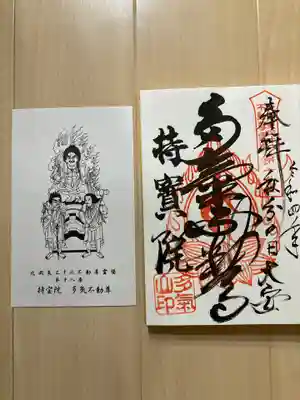 北関東三十六不動尊霊場
第十八番
持宝院 多気不動尊
令和四年
奉拝 秋分の日 大安
多氣不動尊
持寶院
多氣
山印